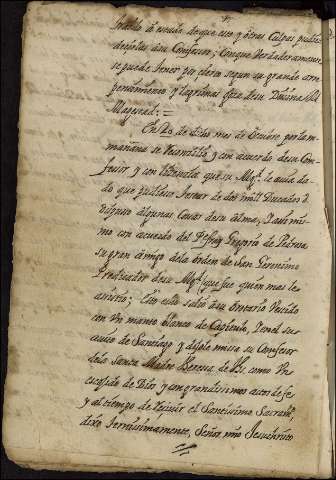 de que esso y otras Culpas pudie
dejarlas a su Confesor; Conque Verdaderamente
se puede tener por cierto segun su grande arre
pentimiento y lagrimas que de su Divina
Magestad: =
En 20 de dicho mes de por la m
mañana se Reconcilio, y con acuerdo de su Con
fesor y con licencia que su Mag.d le avia da
do que pudiesse de dos mill Ducados
algunas cosas de su alma, y assi mis
mo con acuerdo del P.e fray Gregorio de Pedrosa
su gran amigo de la orden de San Geronimo
Predicador de su Mag.d que fue quien mas le
assistio; Este dia salio a su oratorio Vestido
con Un manto blanco de Capitulo, y en el su
de Santiago y dijole missa su Confesor
de la Santa Madre Teresa de Jhs, como
y con grandissimos actos de fee
y al tiempo de reciuir el Santissimo Sacram.to
dixo ternissimamente, Señor mio Jesuchristo